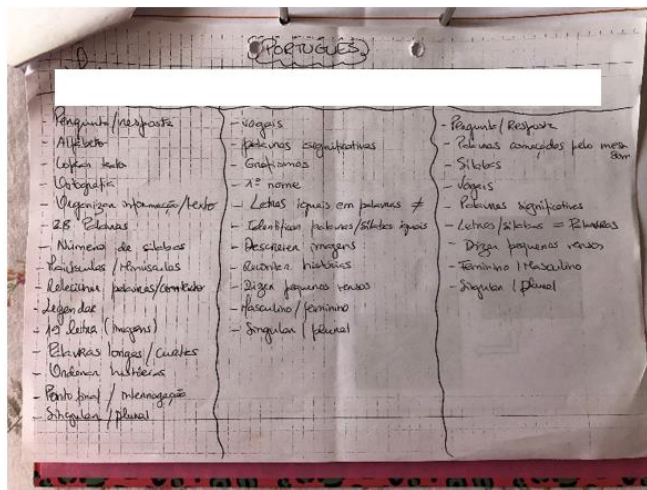 PORTUGUÊS
- Pergunta/resposta
- Alfabeto
- Copiar texto
- Ortografia
- Organizar informação/texto
- 28 Palavras
- Número de sílabas
- Maiúsculas/Minúsculas
- Relacionar palavras/contexto
- Legendar
- 1ª letra (imagens)
- Palavras longas/curtas
- Ordenar histórias
- Ponto final / interrogação
- Singular/plural
- vogais
- palavras significativas
- Grafismos
- 1º nome
- Letras iguais em palavras ≠
- Identificar palavras/sílabas iguais
- Descrever imagens
- Recontar histórias
- Dizer pequenos versos
- Masculino/feminino
- Singular/plural
- Pergunta/Resposta
- Palavras começadas pelo mesmo
som
- Sílabas
- Vogais
- Palavras significativas
- Letras/sílabas = Palavras
- Dizer pequenos versos
- Feminino/Masculino
- Singular/plural